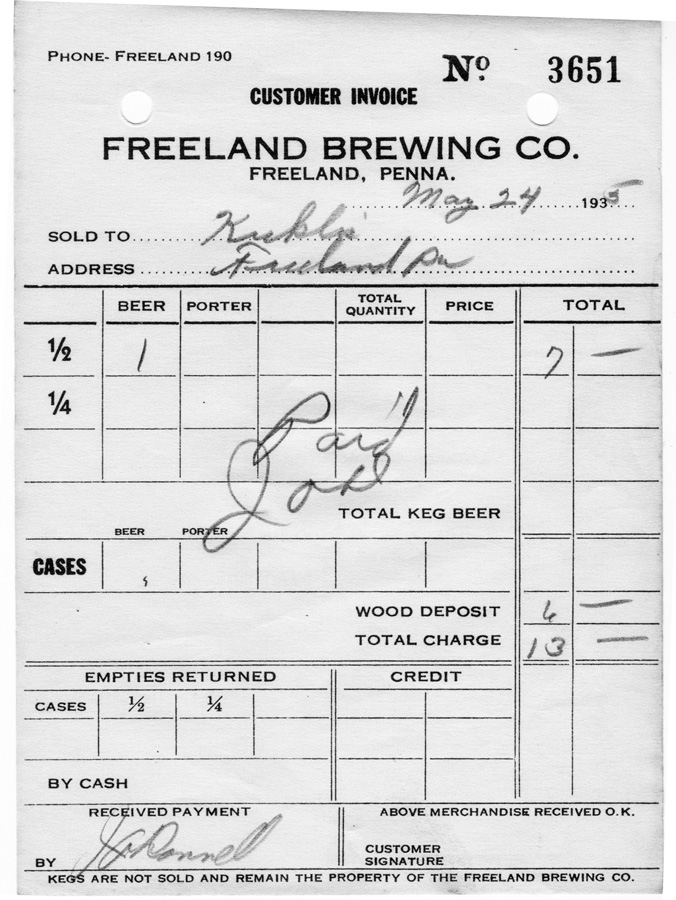 PHONE- FREELAND 190
No 3651
CUSTOMER INVOICE
FREELAND BREWING CO.
FREELAND, PENNA.
May 24 1935
SOLD TO
ADDRESS Freeland Pa
BEER PORTER TOTAL QUANTITY PRICE TOTAL
½ 1 7 —
¼
Paid
TOTAL KEG BEER
BEER PORTER
CASES
WOOD DEPOSIT 6 —
TOTAL CHARGE 13 —
EMPTIES RETURNED CREDIT
CASES ½ ¼
BY CASH
RECEIVED PAYMENT ABOVE MERCHANDISE RECEIVED O.K.
BY CUSTOMER SIGNATURE
KEGS ARE NOT SOLD AND REMAIN THE PROPERTY OF THE FREELAND BREWING CO.